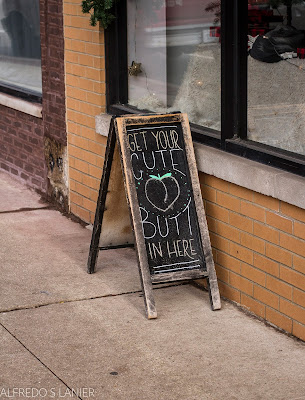 GET YOUR
CUTE
BUTY
IN HERE
ALFREDO S LANIER